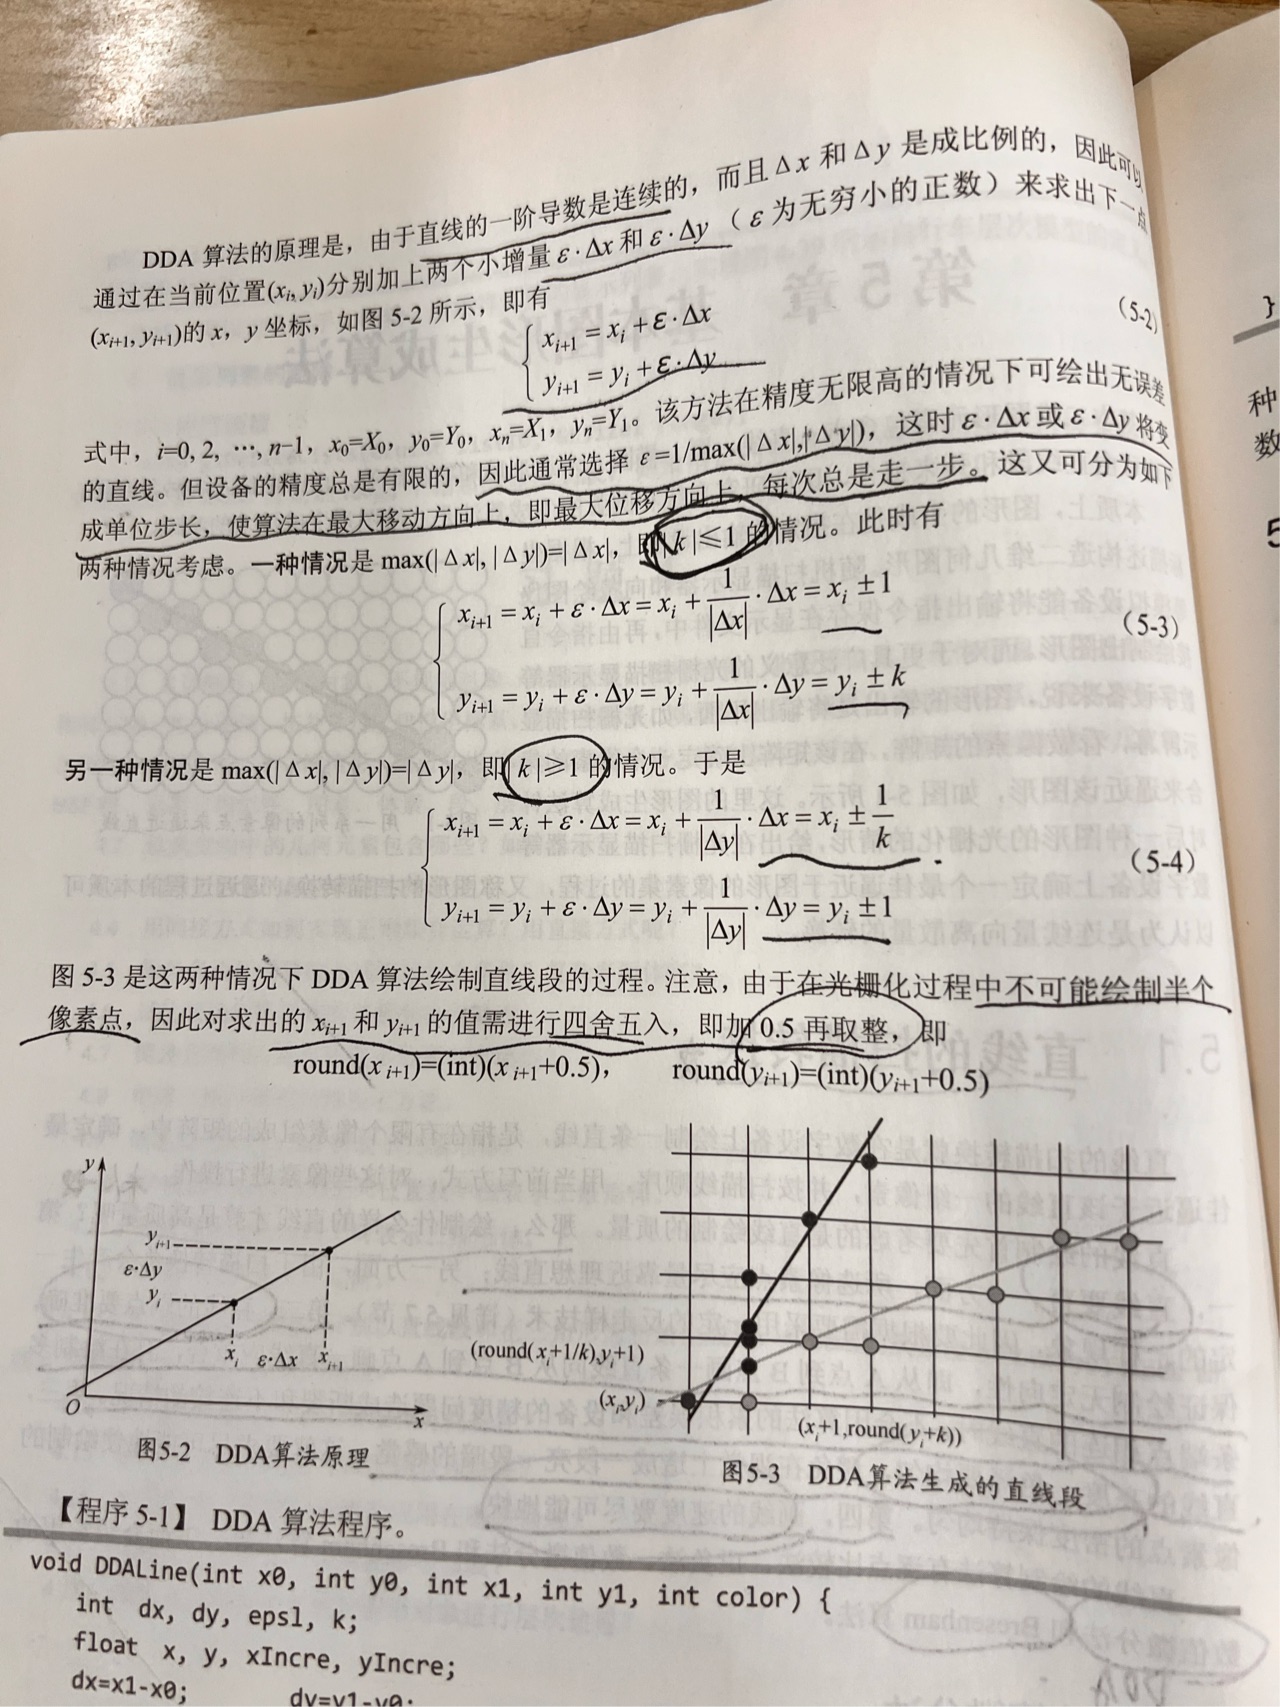 DDA 算法的原理是，由于直线的一阶导数是连续的，而且Δx 和Δy 是成比例的，因此可以
通过在当前位置(xi, yi)分别加上两个小增量 ε·Δx 和 ε·Δy （ε 为无穷小的正数）来求出下一点
(xi+1, yi+1)的 x，y 坐标，如图 5-2 所示，即有
xi+1 = xi + ε·Δx
yi+1 = yi + ε·Δy
(5-2)
式中，i=0, 2, …, n−1，x0=X0，y0=Y0，xn=X1，yn=Y1。该方法在精度无限高的情况下可绘出无误差
的直线。但设备的精度总是有限的，因此通常选择 ε=1/max(|Δx|,|Δy|)，这时 ε·Δx 或 ε·Δy 将变
成单位步长，使算法在最大移动方向上，即最大位移方向上，每次总是走一步。这又可分为如下
两种情况考虑。一种情况是 max(|Δx|, |Δy|)=|Δx|，即|k|≤1 的情况。此时有
xi+1 = xi + ε·Δx = xi + 1/|Δx| ·Δx = xi ±1
yi+1 = yi + ε·Δy = yi + 1/|Δx| ·Δy = yi ± k
(5-3)
另一种情况是 max(|Δx|, |Δy|)=|Δy|，即|k|≥1 的情况。于是
xi+1 = xi + ε·Δx = xi + 1/|Δy| ·Δx = xi ± 1/k
yi+1 = yi + ε·Δy = yi + 1/|Δy| ·Δy = yi ±1
(5-4)
图 5-3 是这两种情况下 DDA 算法绘制直线段的过程。注意，由于在光栅化过程中不可能绘制半个
像素点，因此对求出的 xi+1 和 yi+1 的值需进行四舍五入，即加 0.5 再取整，即
round(xi+1)=(int)(xi+1+0.5)， round(yi+1)=(int)(yi+1+0.5)
y
yi+1
ε·Δy
yi
xi ε·Δx xi+1
O
x
图5-2 DDA算法原理
(round(xi+1/k),yi+1)
(xi,yi)
(xi+1,round(yi+k))
图5-3 DDA算法生成的直线段
【程序 5-1】 DDA 算法程序。
void DDALine(int x0, int y0, int x1, int y1, int color) {
int dx, dy, epsl, k;
float x, y, xIncre, yIncre;
dx=x1-x0; dy=y1-y0;
}
种
数
5